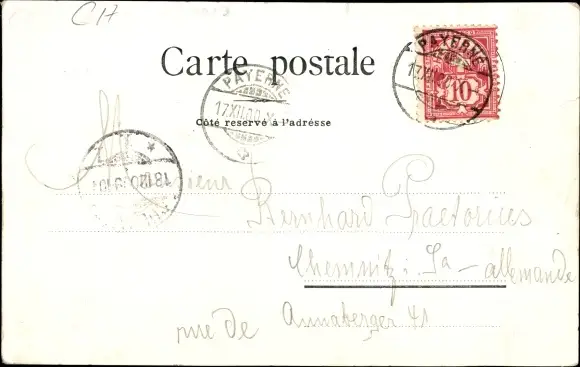 CH
Carte postale
PAYERNE
10
PAYERNE
17.XII.00
Côté reservé à l'adresse
Monsieur
Bernhard Praetorius
Chemnitz i. Sa - allemande
rue de Annaberger 41